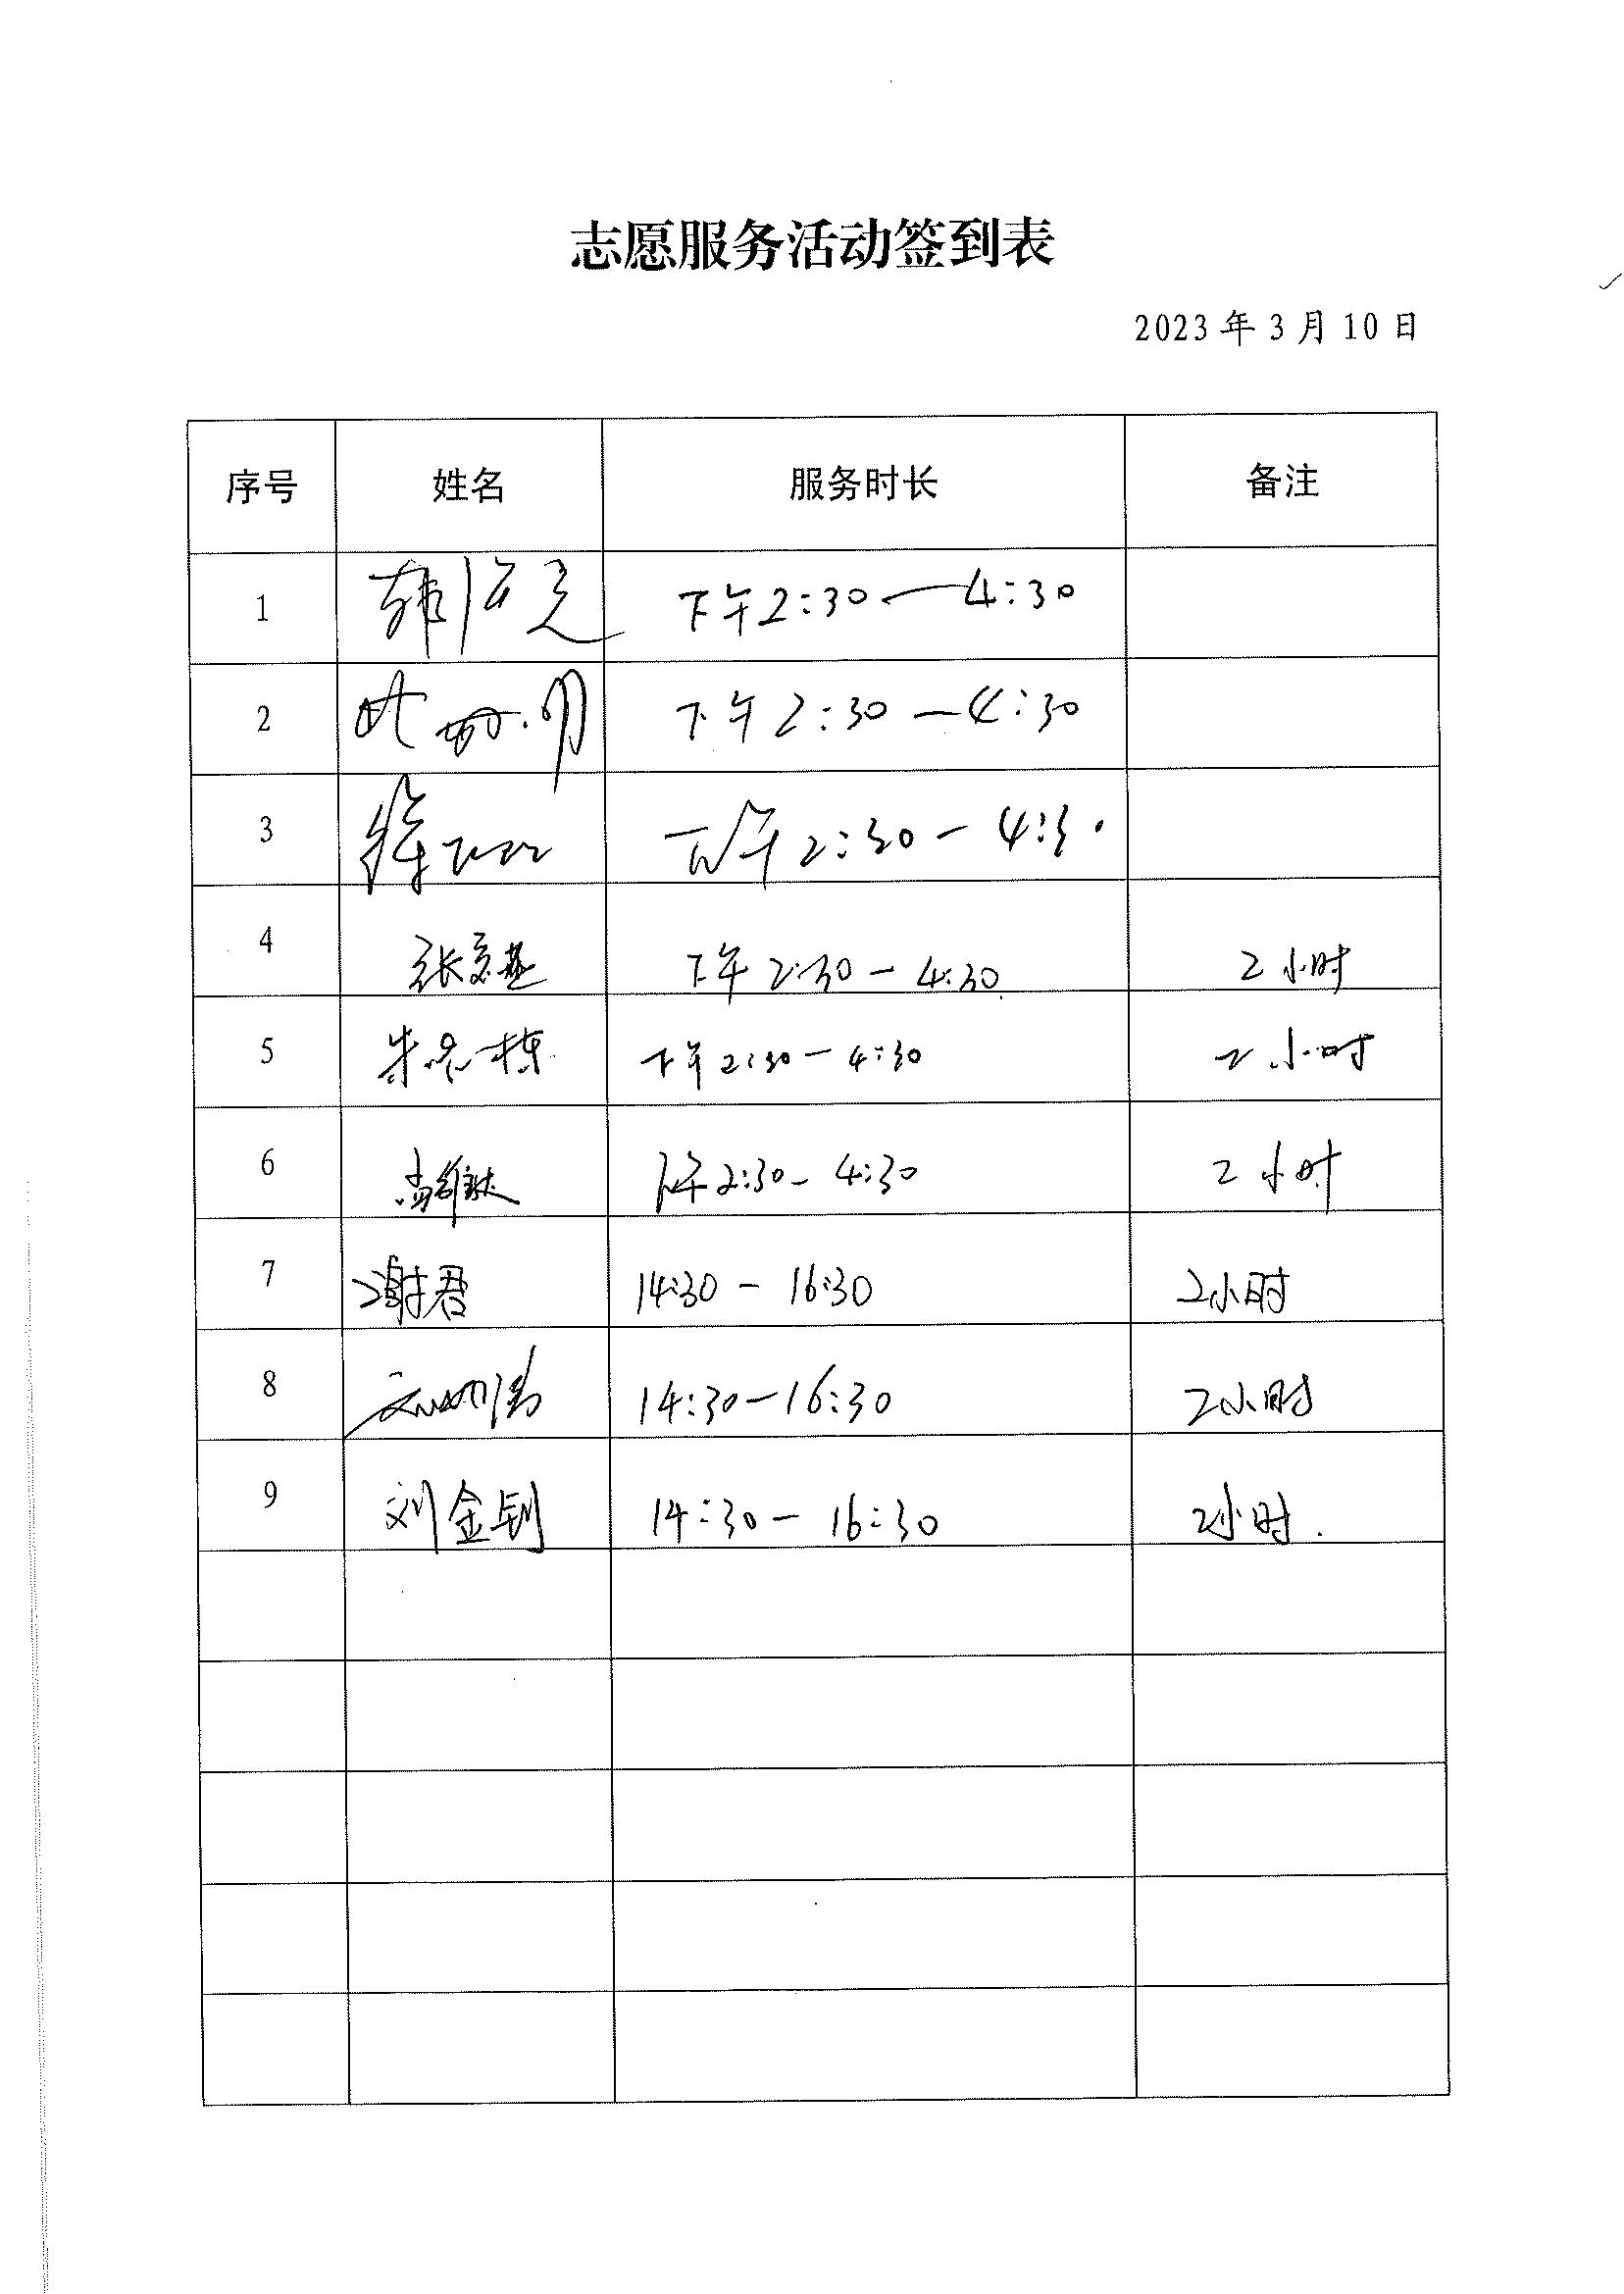 志愿服务活动签到表
2023 年 3 月 10 日
序号 姓名 服务时长 备注
1 下午2:30—4:30
2 下午2:30—4:30
3 下午2:30—4:30
4 张 下午2:30—4:30 2小时
5 朱 栋 下午2:30—4:30 2小时
6 下午2:30—4:30 2小时
7 谢君 14:30—16:30 2小时
8 14:30—16:30 2小时
9 刘金钊 14:30—16:30 2小时.